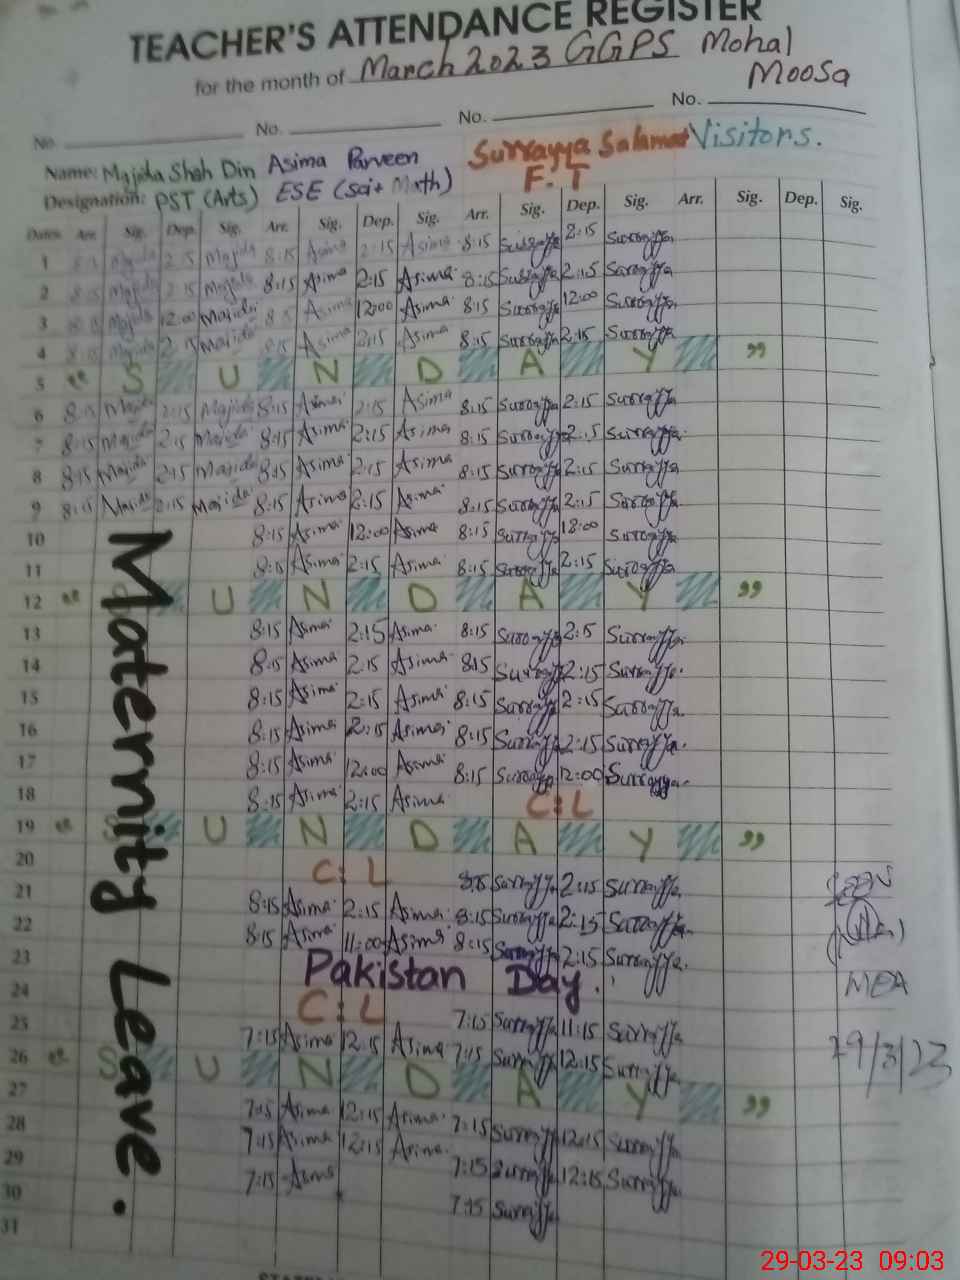 TEACHER'S ATTENDANCE REGISTER
for the month of March 2023 GGPS Mohal
Moosa
No. No. No. No.
Name: Majida Shah Din Asima Parveen Surrayya Salamat Visitors.
Designation: PST (Arts) ESE (Sci+Math) F.T
Dates Arr. Sig. Dep. Sig. Arr. Sig. Dep. Sig. Arr. Sig. Dep. Sig. Arr. Sig. Dep. Sig.
1 8:15 Majida 2:15 Majida 8:15 Asima 2:15 Asima 8:15 Surrayya 2:15 Surrayya
2 8:15 Majida 2:15 Majida 8:15 Asima 2:15 Asima 8:15 Surrayya 2:15 Surrayya
3 8:15 Majida 12:00 Majida 8:15 Asima 12:00 Asima 8:15 Surrayya 12:00 Surrayya
4 8:15 Majida 2:15 Majida 8:15 Asima 2:15 Asima 8:15 Surrayya 2:15 Surrayya
5 " S U N D A Y "
6 8:15 Majida 2:15 Majida 8:15 Asima 2:15 Asima 8:15 Surrayya 2:15 Surrayya
7 8:15 Majida 2:15 Majida 8:15 Asima 2:15 Asima 8:15 Surrayya 2:15 Surrayya
8 8:15 Majida 2:15 Majida 8:15 Asima 2:15 Asima 8:15 Surrayya 2:15 Surrayya
9 8:15 Majida 2:15 Majida 8:15 Asima 2:15 Asima 8:15 Surrayya 2:15 Surrayya
Maternity Leave.
10 8:15 Asima 12:00 Asima 8:15 Surrayya 12:00 Surrayya
11 8:15 Asima 2:15 Asima 8:15 Surrayya 2:15 Surrayya
12 " S U N D A Y "
13 8:15 Asima 2:15 Asima 8:15 Surrayya 2:15 Surrayya
14 8:15 Asima 2:15 Asima 8:15 Surrayya 2:15 Surrayya
15 8:15 Asima 2:15 Asima 8:15 Surrayya 2:15 Surrayya
16 8:15 Asima 2:15 Asima 8:15 Surrayya 2:15 Surrayya
17 8:15 Asima 12:00 Asima 8:15 Surrayya 12:00 Surrayya
18 8:15 Asima 2:15 Asima C:L
19 " S U N D A Y "
20 C:L 8:15 Surrayya 2:15 Surrayya
21 8:15 Asima 2:15 Asima 8:15 Surrayya 2:15 Surrayya
22 8:15 Asima 11:00 Asima 8:15 Surrayya 2:15 Surrayya
23 Pakistan Day.
24 C:L 7:15 Surrayya 11:15 Surrayya
25 7:15 Asima 12:15 Asima 7:15 Surrayya 12:15 Surrayya
26 " S U N D A Y "
27 7:15 Asima 12:15 Asima 7:15 Surrayya 12:15 Surrayya
28 7:15 Asima 12:15 Asima 7:15 Surrayya 12:15 Surrayya
29 7:15 Asima 7:15 Surrayya
30
31
MEA
29/3/23
29-03-23 09:03